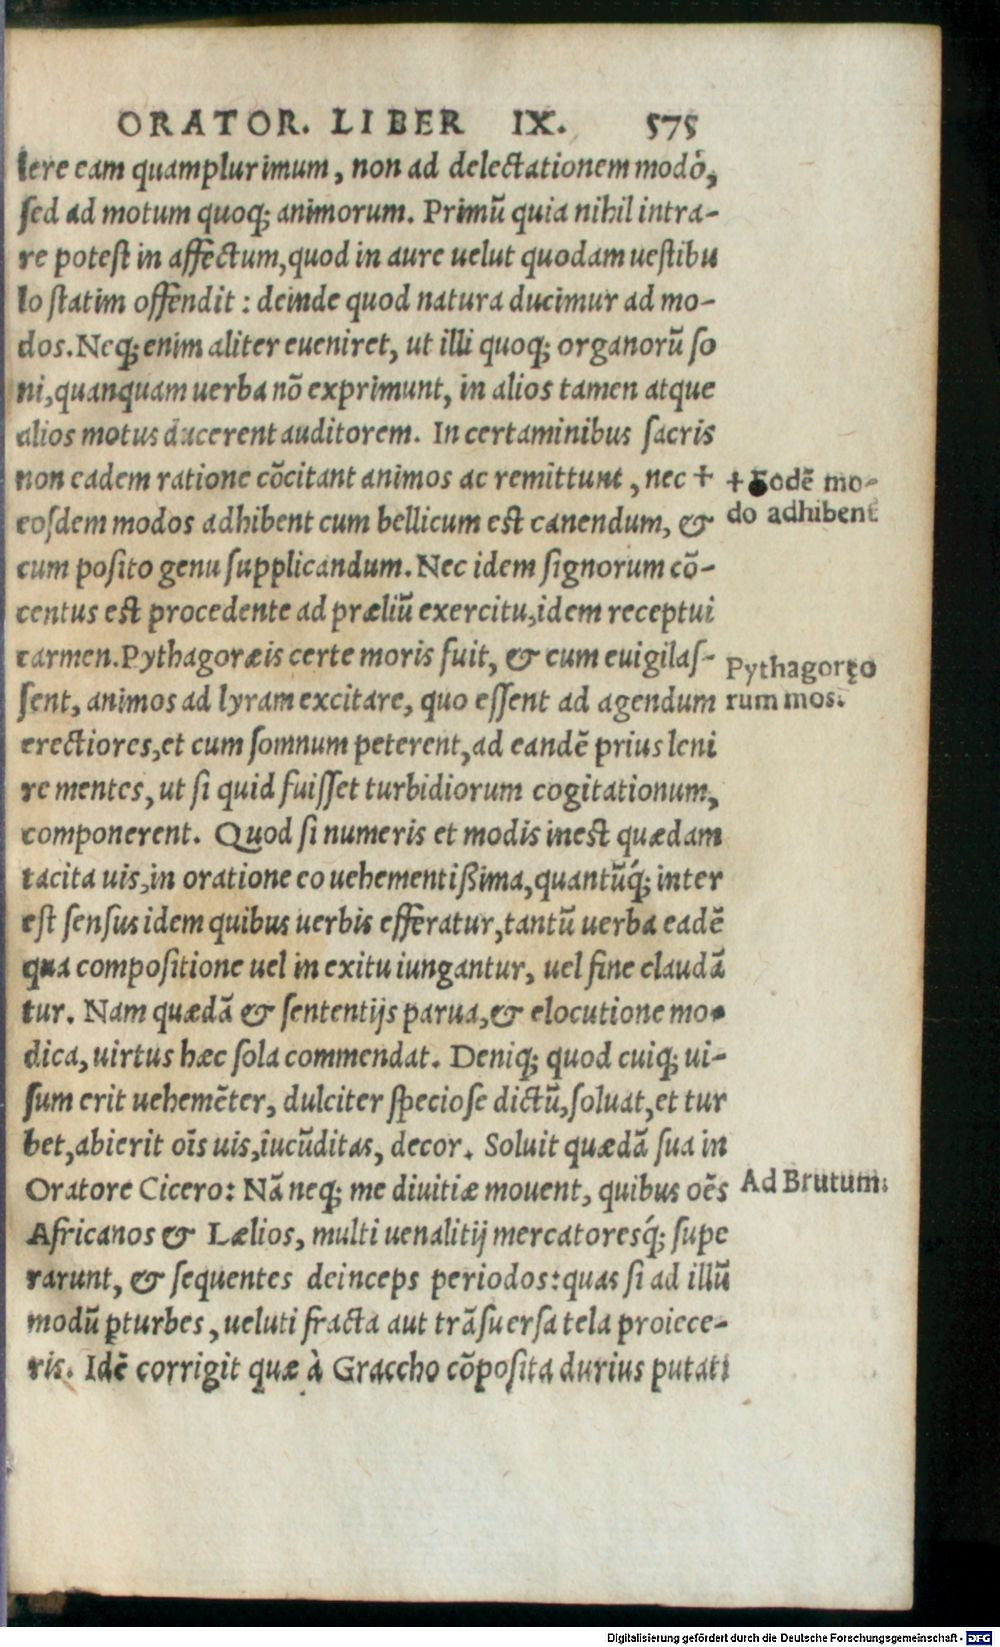 ORATOR. LIBER IX. 575
lere eam quamplurimum, non ad delectationem modò,
sed ad motum quoq; animorum. Primũ quia nihil intra-
re potest in affectum, quod in aure uelut quodam uestibu
lo statim offendit: deinde quod natura ducimur ad mo-
dos. Neq; enim aliter eueniret, ut illi quoq; organorũ so
ni, quanquam uerba nõ exprimunt, in alios tamen atque
alios motus ducerent auditorem. In certaminibus sacris
non eadem ratione cõcitant animos ac remittunt, nec +
eosdem modos adhibent cum bellicum est canendum, &
cum posito genu supplicandum. Nec idem signorum cõ-
centus est procedente ad præliũ exercitu, idem receptui
carmen. Pythagoræis certe moris fuit, & cum euigilas-
sent, animos ad lyram excitare, quo essent ad agendum
erectiores, et cum somnum peterent, ad eandẽ prius leni
re mentes, ut si quid fuisset turbidiorum cogitationum,
componerent. Quod si numeris et modis inest quædam
tacita uis, in oratione eo uehementißima, quantũq́; inter
est sensus idem quibus uerbis efferatur, tantũ uerba eadẽ
qua compositione uel in exitu iungantur, uel fine claudã
tur. Nam quædã & sententijs parua, & elocutione mo-
dica, uirtus hæc sola commendat. Deniq; quod cuiq; ui-
sum erit uehemẽter, dulciter speciose dictũ, soluat, et tur
bet, abierit oĩs uis, iucũditas, decor. Soluit quædã sua in
Oratore Cicero: Nã neq; me diuitiæ mouent, quibus oẽs
Africanos & Lælios, multi uenalitij mercatoresq́; supe
rarunt, & sequentes deinceps periodos: quas si ad illũ
modũ ꝑturbes, ueluti fracta aut trãsuersa tela proiece-
ris. Idẽ corrigit quæ à Graccho cõposita durius putat:
+ Eodẽ mo-
do adhibent
Pythagoręo
rum mos.
Ad Brutum.
Digitalisierung gefördert durch die Deutsche Forschungsgemeinschaft - DFG